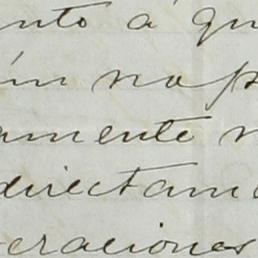 nto á qu
ín no p
amente n
directam
eraciones